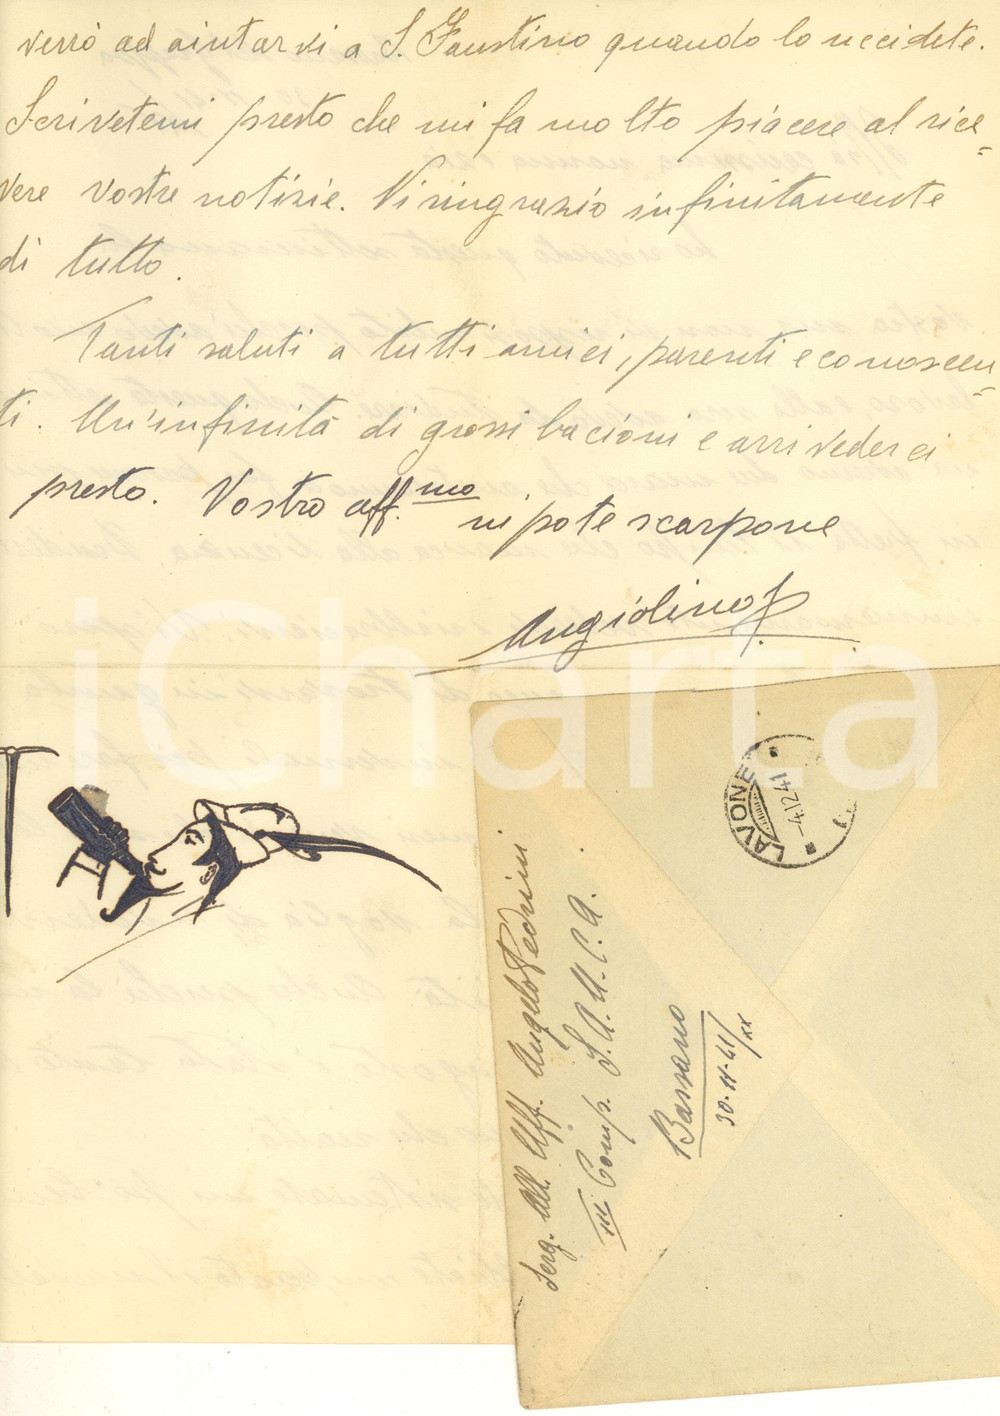 verrò ad aiutarvi a S. Faustino quando lo uccidete.
Scrivetemi presto che mi fa molto piacere al rice=
vere vostre notizie. Vi ringrazio infinitamente
di tutto.
Tanti saluti a tutti amici, parenti e conoscen=
ti. Un'infinità di grossi bacioni e arrivederci
presto. Vostro aff.mo nipote scarpone
Angiolino P.
iCharta
LAVONE
-4.12.41
Serg. All. Uff. Angelo Pedrini
III Comp. S.A.U.C.A.
Bassano
30-11-41/XX